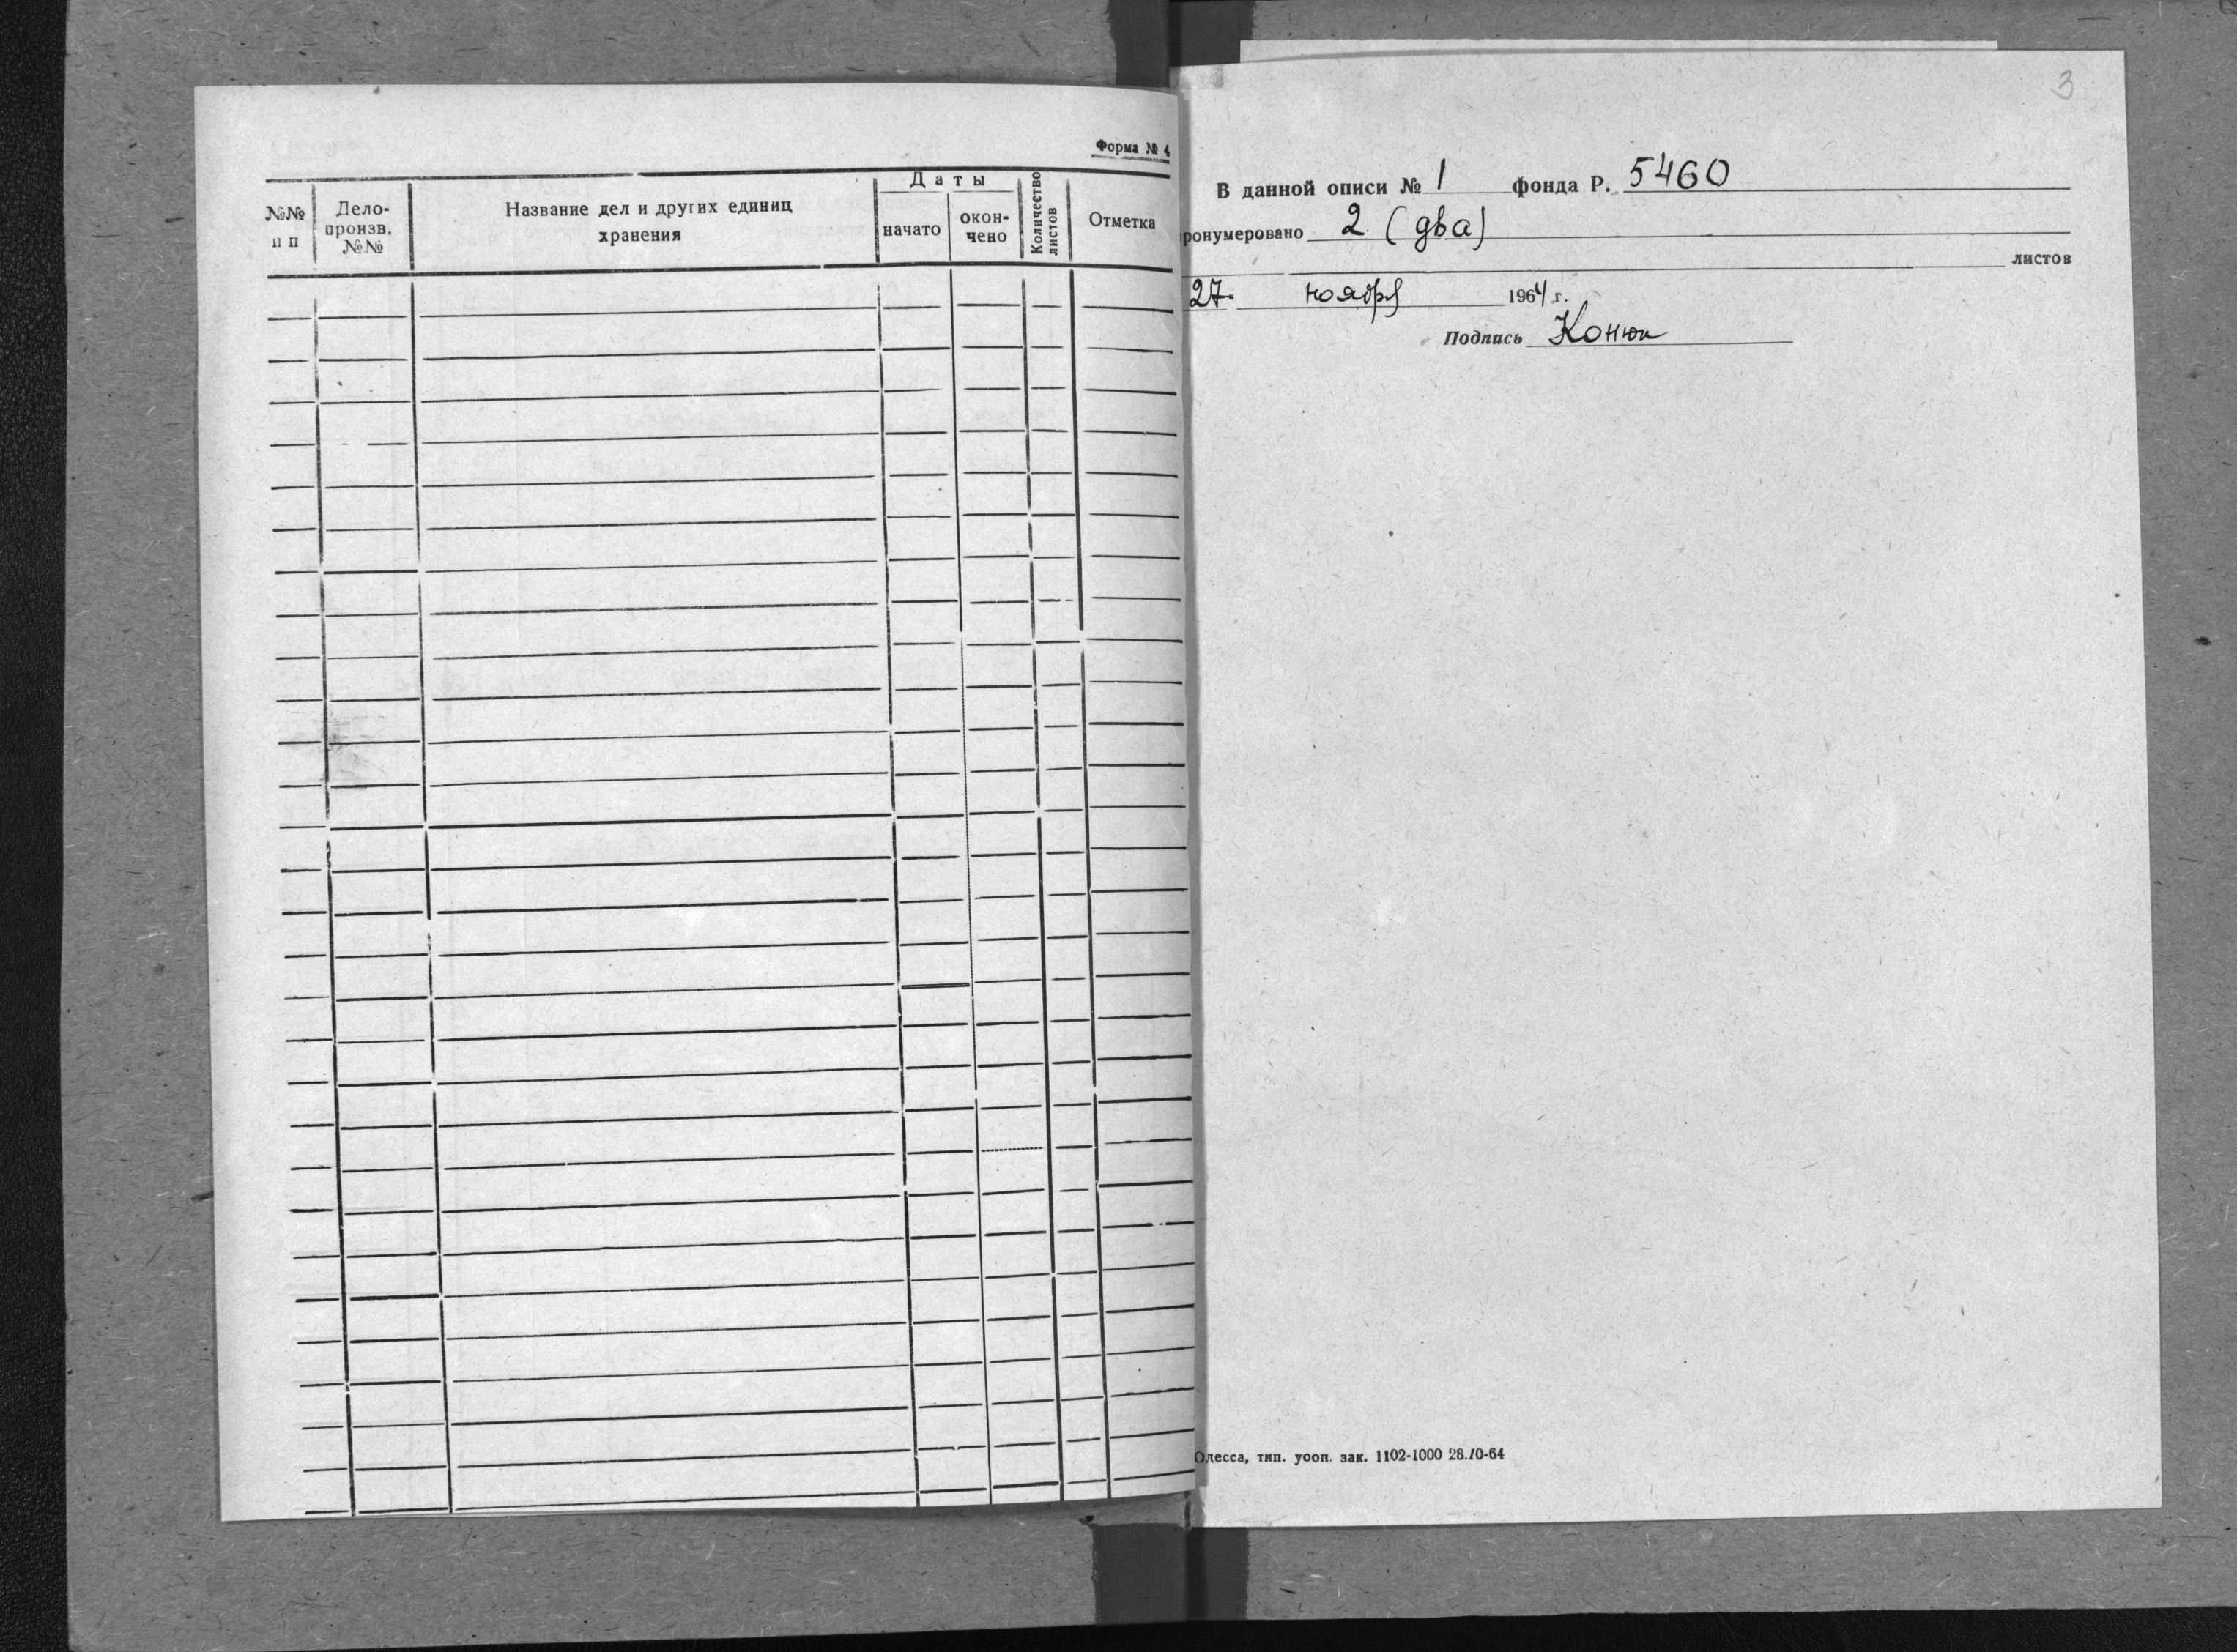 Форма № 4
№№ п п
Дело-произв. №№
Название дел и других единиц хранения
Даты
начато
окон-чено
Количество листов
Отметка
3
В данной описи № 1 фонда Р. 5460
ронумеровано 2 (два)
листов
27 ноября 1964 г.
Подпись Конюк
Одесса, тип. уооп. зак. 1102-1000 28.10-64